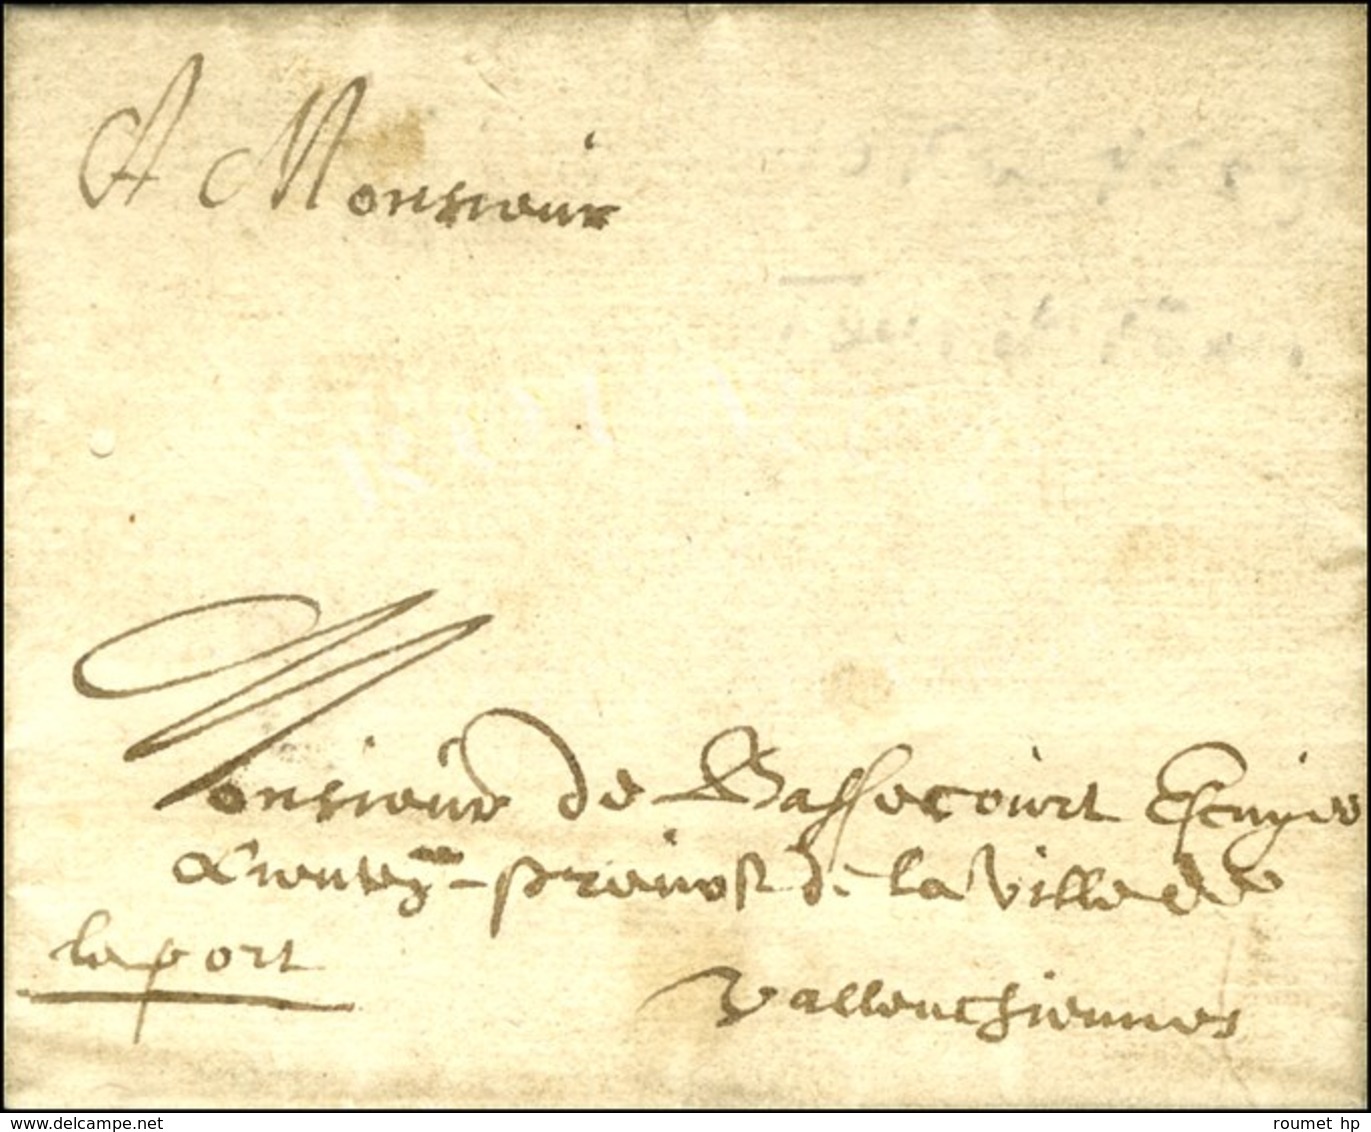 A Monsieur
Monsieur de Bassecourt Escuyer
Lieuten prevost de la Ville de
le port
Vallenchiennes
delcampe.net
roumet hp